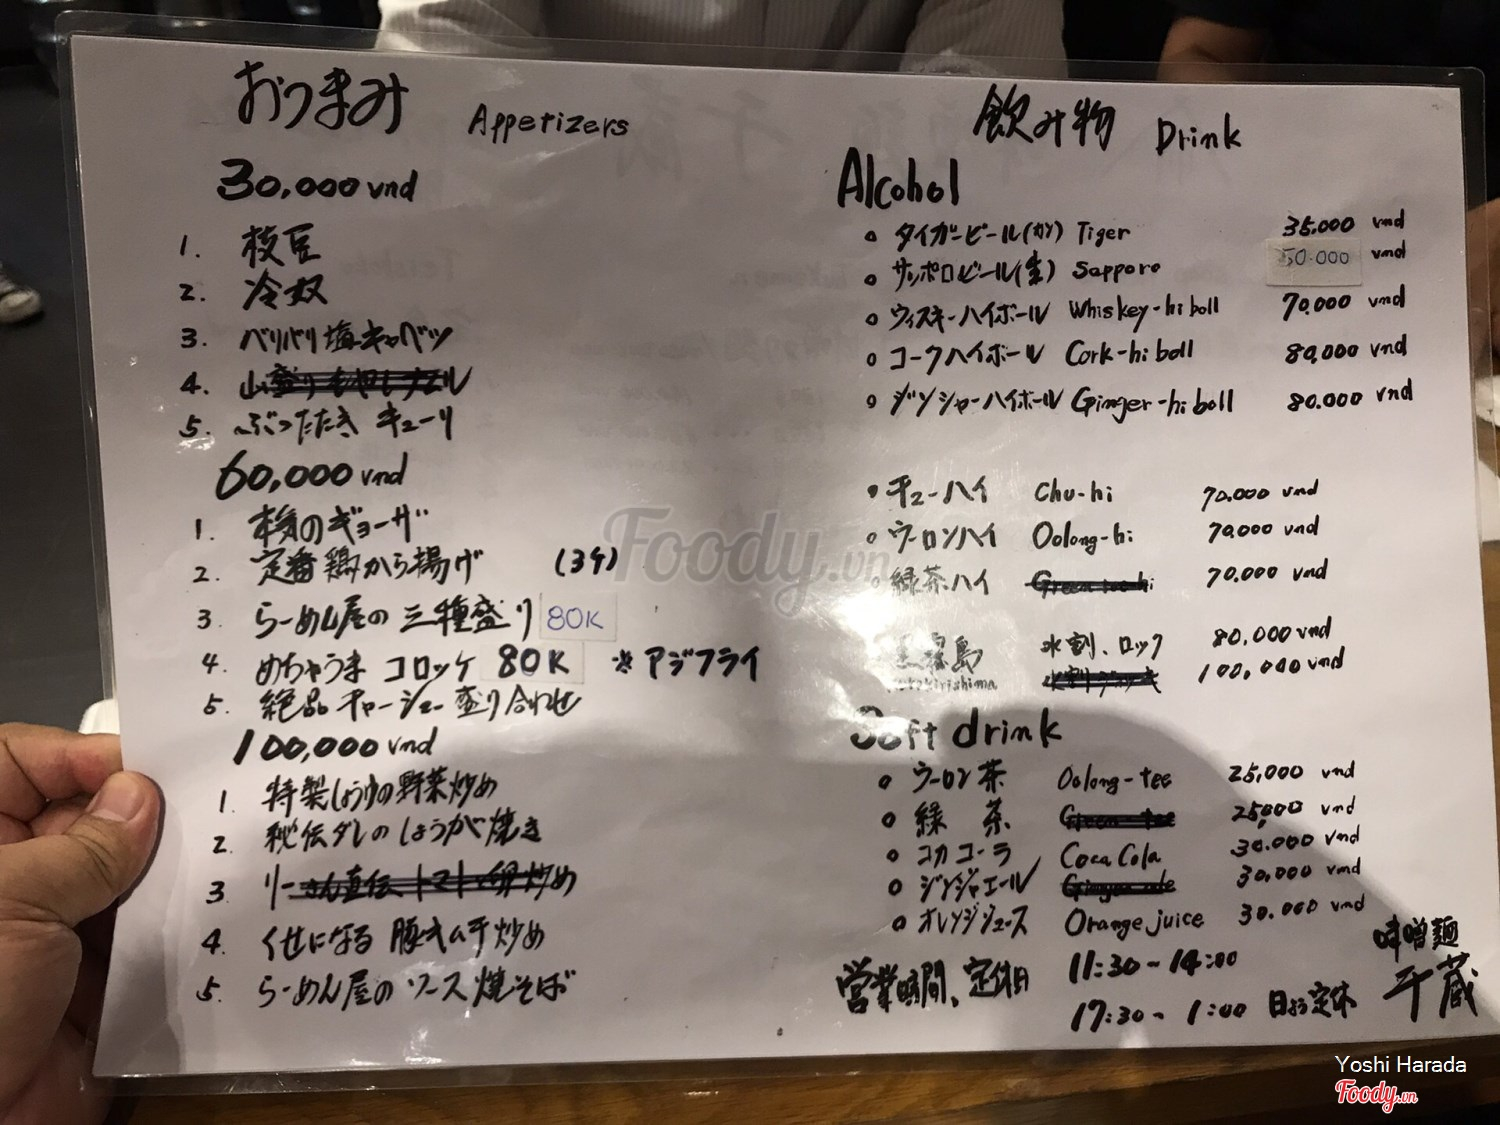 おつまみ Appetizers
30,000 vnd
1. 枝豆
2. 冷奴
3. バリバリ塩キャベツ
4. 山盛りもやしナムル
5. ぶったたき キューリ
60,000 vnd
1. 本気のギョーザ
2. 定番鶏から揚げ (3ケ)
3. らーめん屋の 三種盛り 80K
4. めちゃうま コロッケ 80K ※アジフライ
5. 絶品チャーシュー盛り合わせ
100,000 vnd
1. 特製しょうゆの野菜炒め
2. 秘伝ダレの しょうが焼き
3. リーさん直伝、トマト卵炒め
4. くせになる 豚キムチ炒め
5. らーめん屋の ソース焼そば
飲み物 Drink
Alcohol
タイガービール(カン) Tiger 35,000 vnd
サッポロビール(生) Sapporo 50.000 vnd
ウィスキーハイボール Whiskey-hi boll 70,000 vnd
コークハイボール Cork-hi boll 80,000 vnd
ジンジャーハイボール Ginger-hi boll 80.000 vnd
チューハイ Chu-hi 70.000 vnd
ウーロンハイ Oolong-hi 70,000 vnd
緑茶ハイ 70.000 vnd
黒霧島 水割、ロック 80,000 vnd
100,000 vnd
Soft drink
ウーロン茶 Oolong-tee 25,000 vnd
緑茶 Green-tee 25,000 vnd
コカコーラ Coca Cola 30.000 vnd
ジンジャエール 30,000 vnd
オレンジジュース Orange juice 30.000 vnd
営業時間、定休日 11:30~14:00
17:30~1:00 日よう定休
味噌麺
千蔵
Foody.vn
Yoshi Harada
Foody.vn